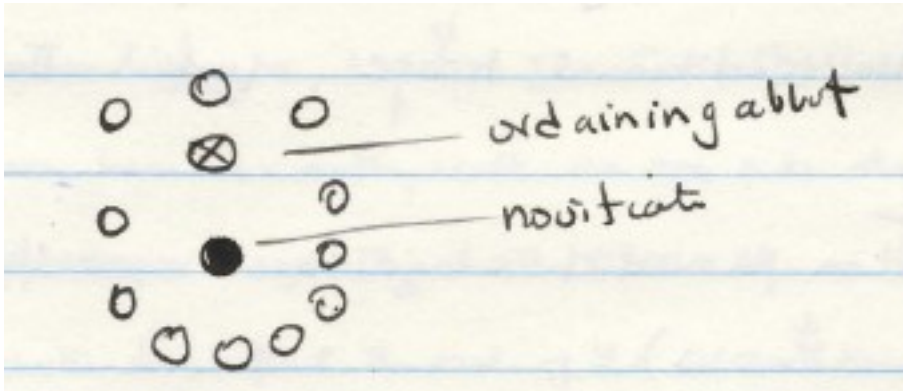 ordaining abbot
novitiate